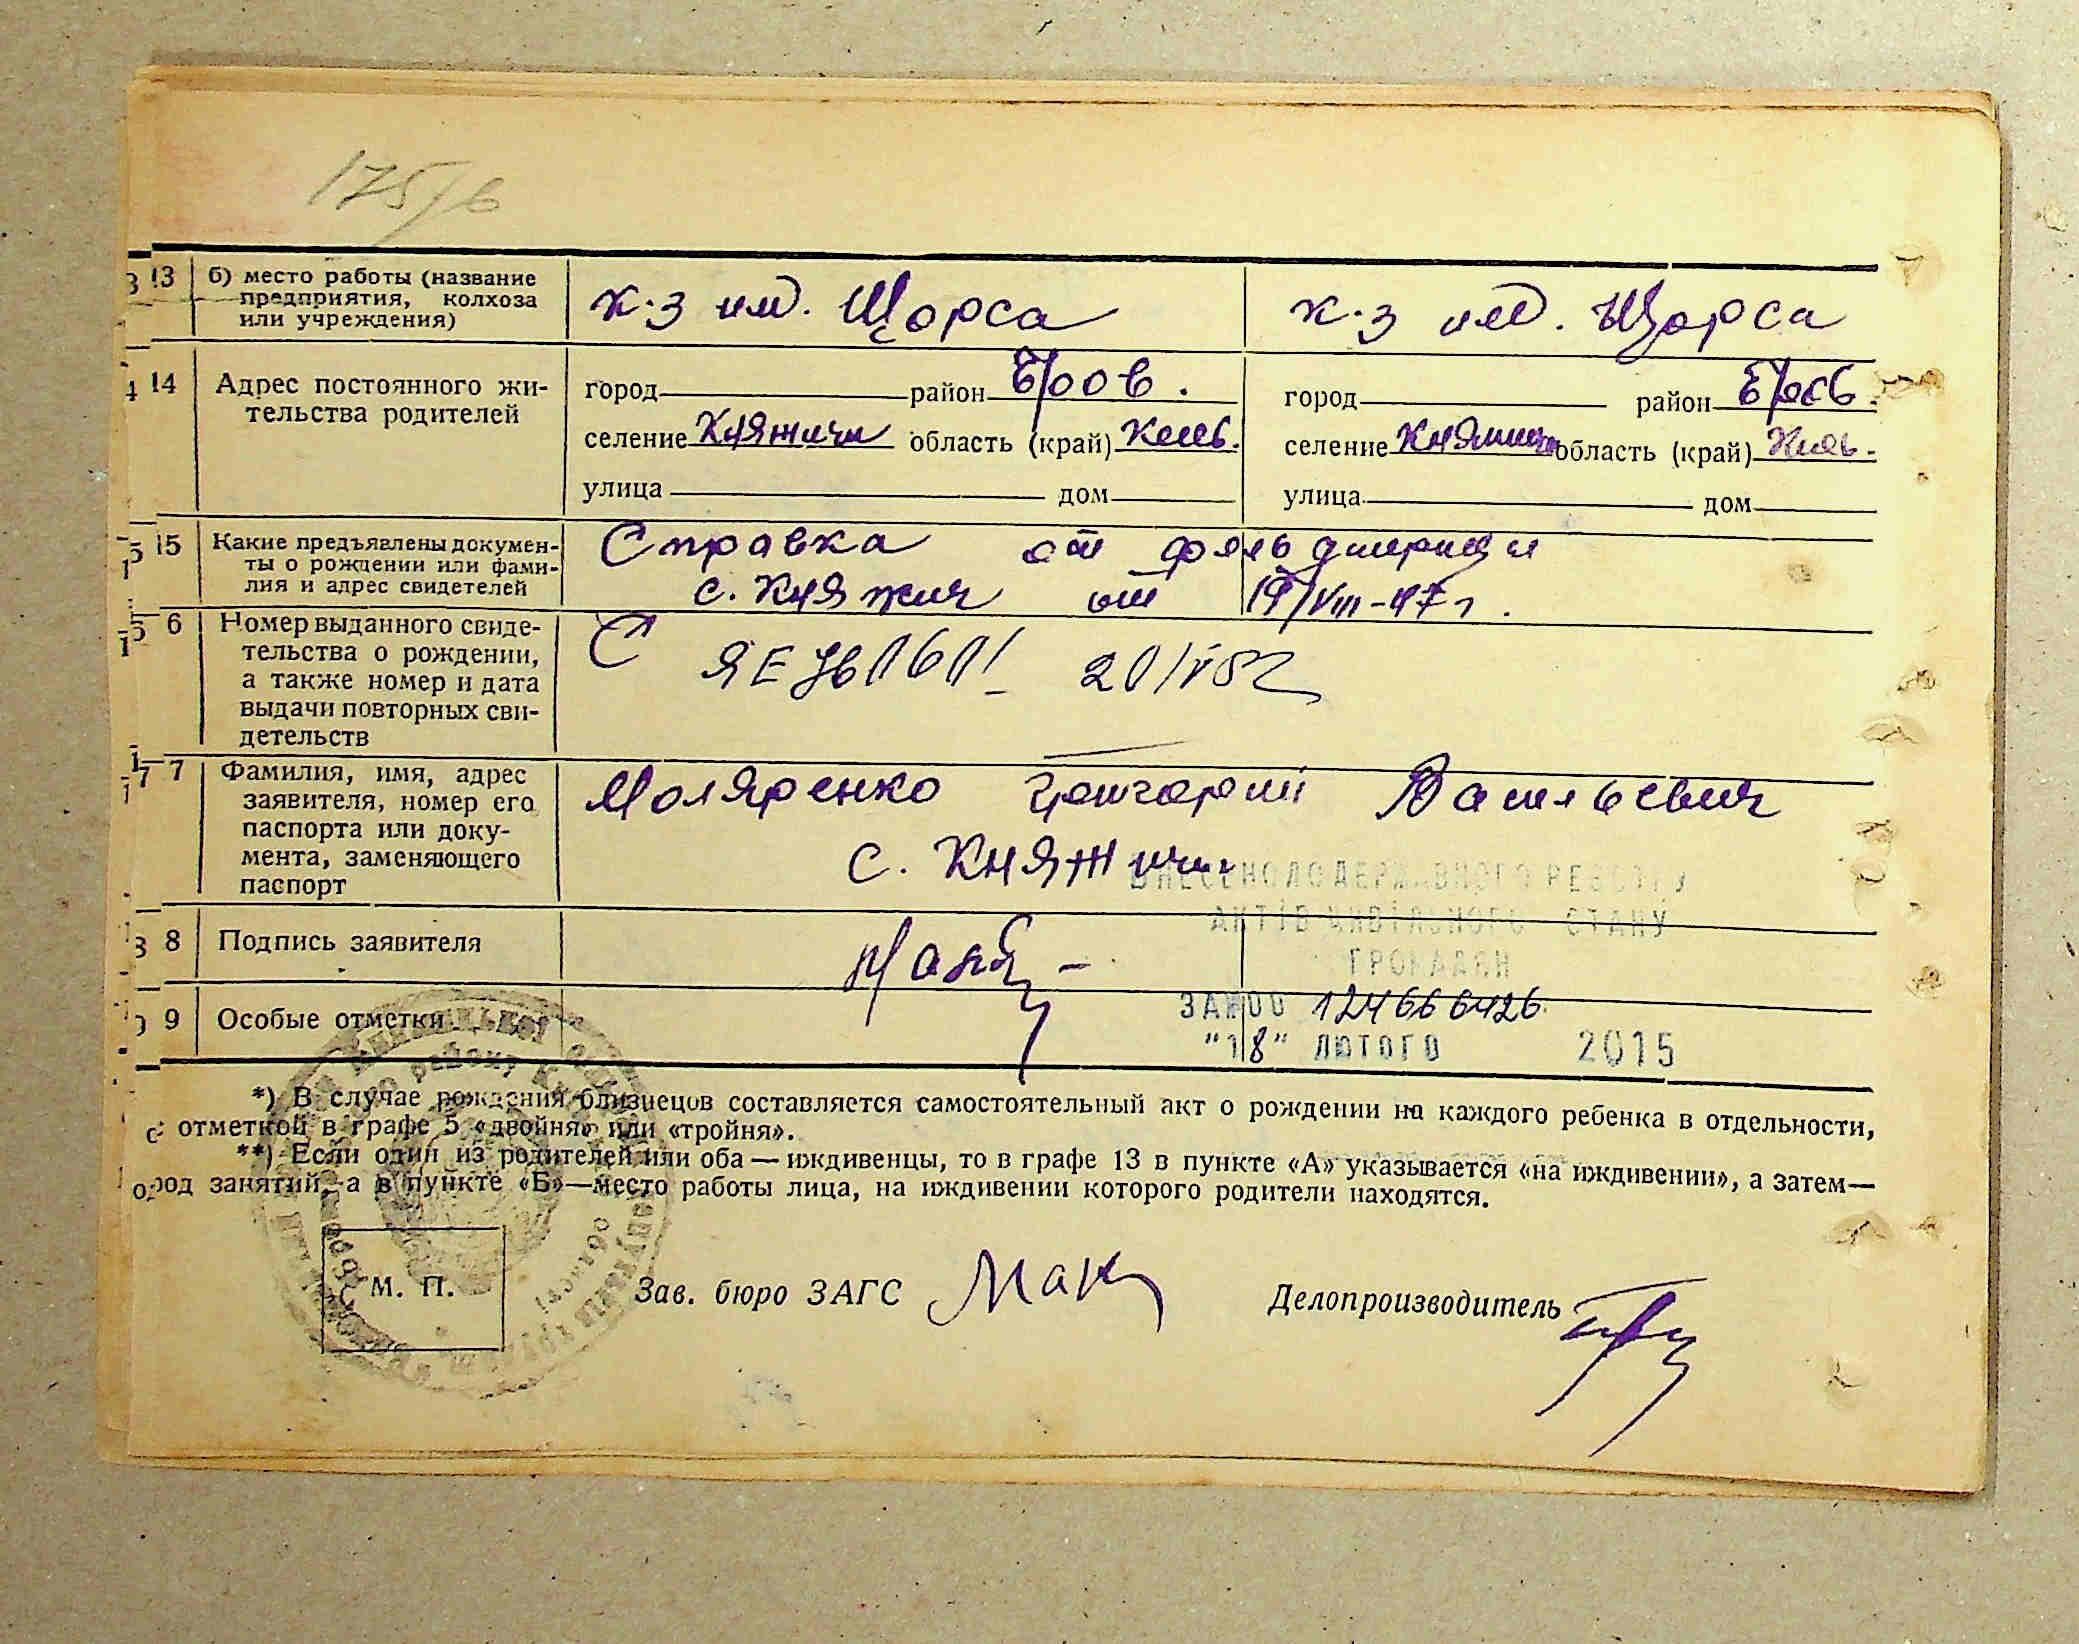 175/6
13 б) место работы (название
предприятия, колхоза
или учреждения)
к-з им. Щорса к-з им. Щорса
14 Адрес постоянного жи-
тельства родителей
город район Бров. город район Бров.
селение Княжичи область (край) Киев. селение Княжичи область (край) Киев.
улица дом улица дом
15 Какие предъявлены докумен-
ты о рождении или фами-
лия и адрес свидетелей
Справка от фельдшерици
с. Княжич от 19/VIII-47 г.
6 Номер выданного свиде-
тельства о рождении,
а также номер и дата
выдачи повторных сви-
детельств
7 Фамилия, имя, адрес
заявителя, номер его
паспорта или доку-
мента, заменяющего
паспорт
Моляренко Григорий Васильевич
с. Княжичи
ВНЕСЕНО ДО ДЕРЖАВНОГО РЕЄСТРУ
АКТІВ ЦИВІЛЬНОГО СТАНУ
ГРОМАДЯН
8 Подпись заявителя
9 Особые отметки
124666426
"18" ЛЮТОГО 2015
*) В случае рождения близнецов составляется самостоятельный акт о рождении на каждого ребенка в отдельности,
с отметкой в графе 5 «двойня» или «тройня».
**) Если один из родителей или оба — иждивенцы, то в графе 13 в пункте «А» указывается «на иждивении», а затем—
род занятий, а в пункте «Б»—место работы лица, на иждивении которого родители находятся.
М. П.
Зав. бюро ЗАГС
Делопроизводитель